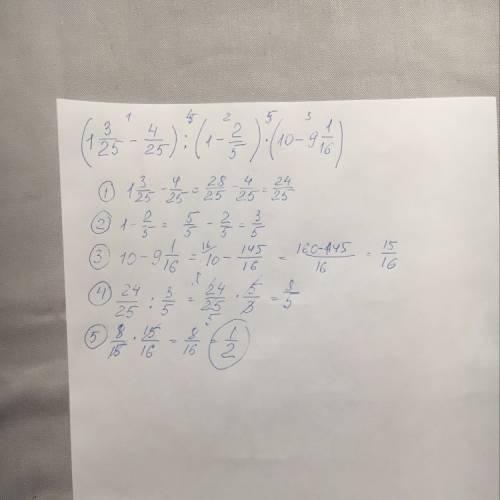 1 4 2 5 3
(1 3/25 - 4/25) : (1 - 2/5) · (10 - 9 1/16)
① 1 3/25 - 4/25 = 28/25 - 4/25 = 24/25
② 1 - 2/5 = 5/5 - 2/5 = 3/5
③ 10 - 9 1/16 = 10 - 145/16 = 160-145/16 = 15/16
④ 24/25 : 3/5 = 24/25 · 5/3 = 8/5
⑤ 8/15 · 15/16 = 8/16 = 1/2